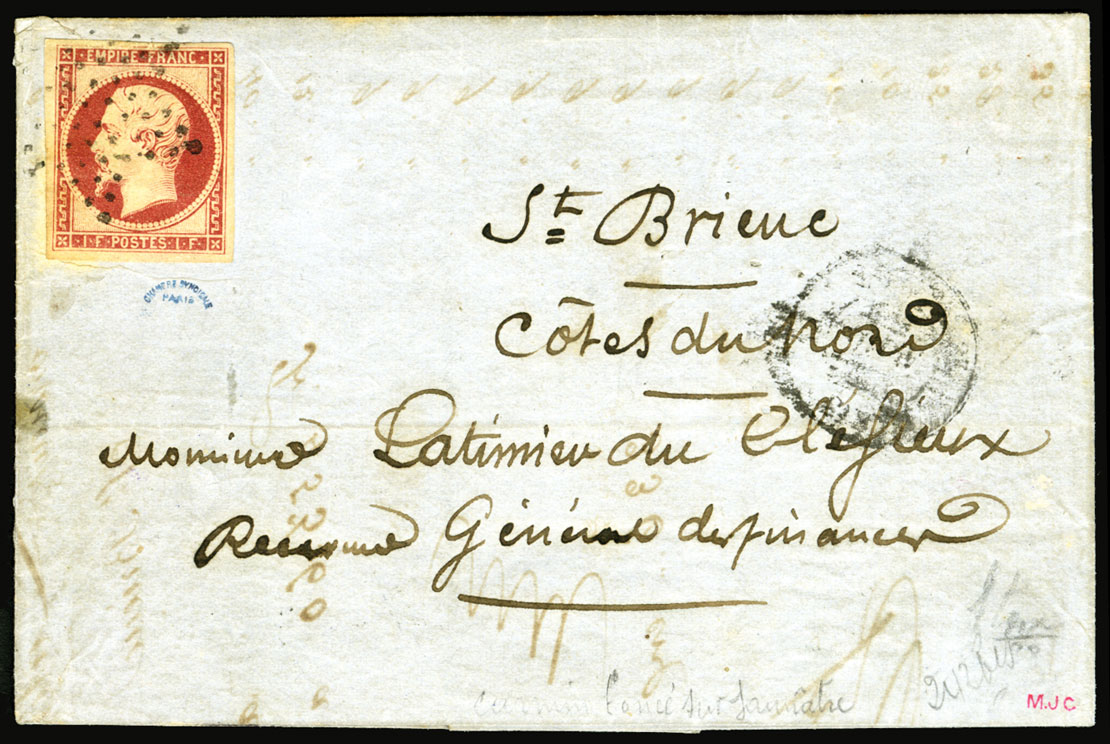 EMPIRE FRANC
1 F POSTES 1 F
CHAMBRE SYNDICALE
PARIS
St Brieuc
Côtes du Nord
Monsieur Latimier du Clésieux
Receveur Général des finances
carmin foncé sur jaunâtre
M.J.C